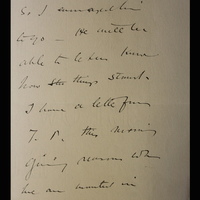 So I
to go – He will be
able to let us know
how things stand.
I have a letter from
T. P. this morning
giving reasons why
we are wanted in